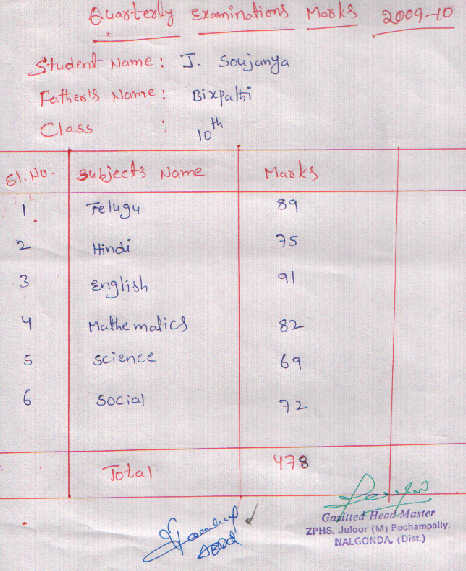 Quarterly Examinations Marks 2009-10
Student Name : J. Soujanya
Father's Name : Bixpathi
Class : 10th
Sl. No. Subjects Name Marks
1 Telugu 89
2 Hindi 75
3 English 91
4 Mathematics 82
5 Science 69
6 Social 72
Total 478
Gazitted Head Master
ZPHS, Juloor (M) Pochampally.
NALGONDA. (Dist.)